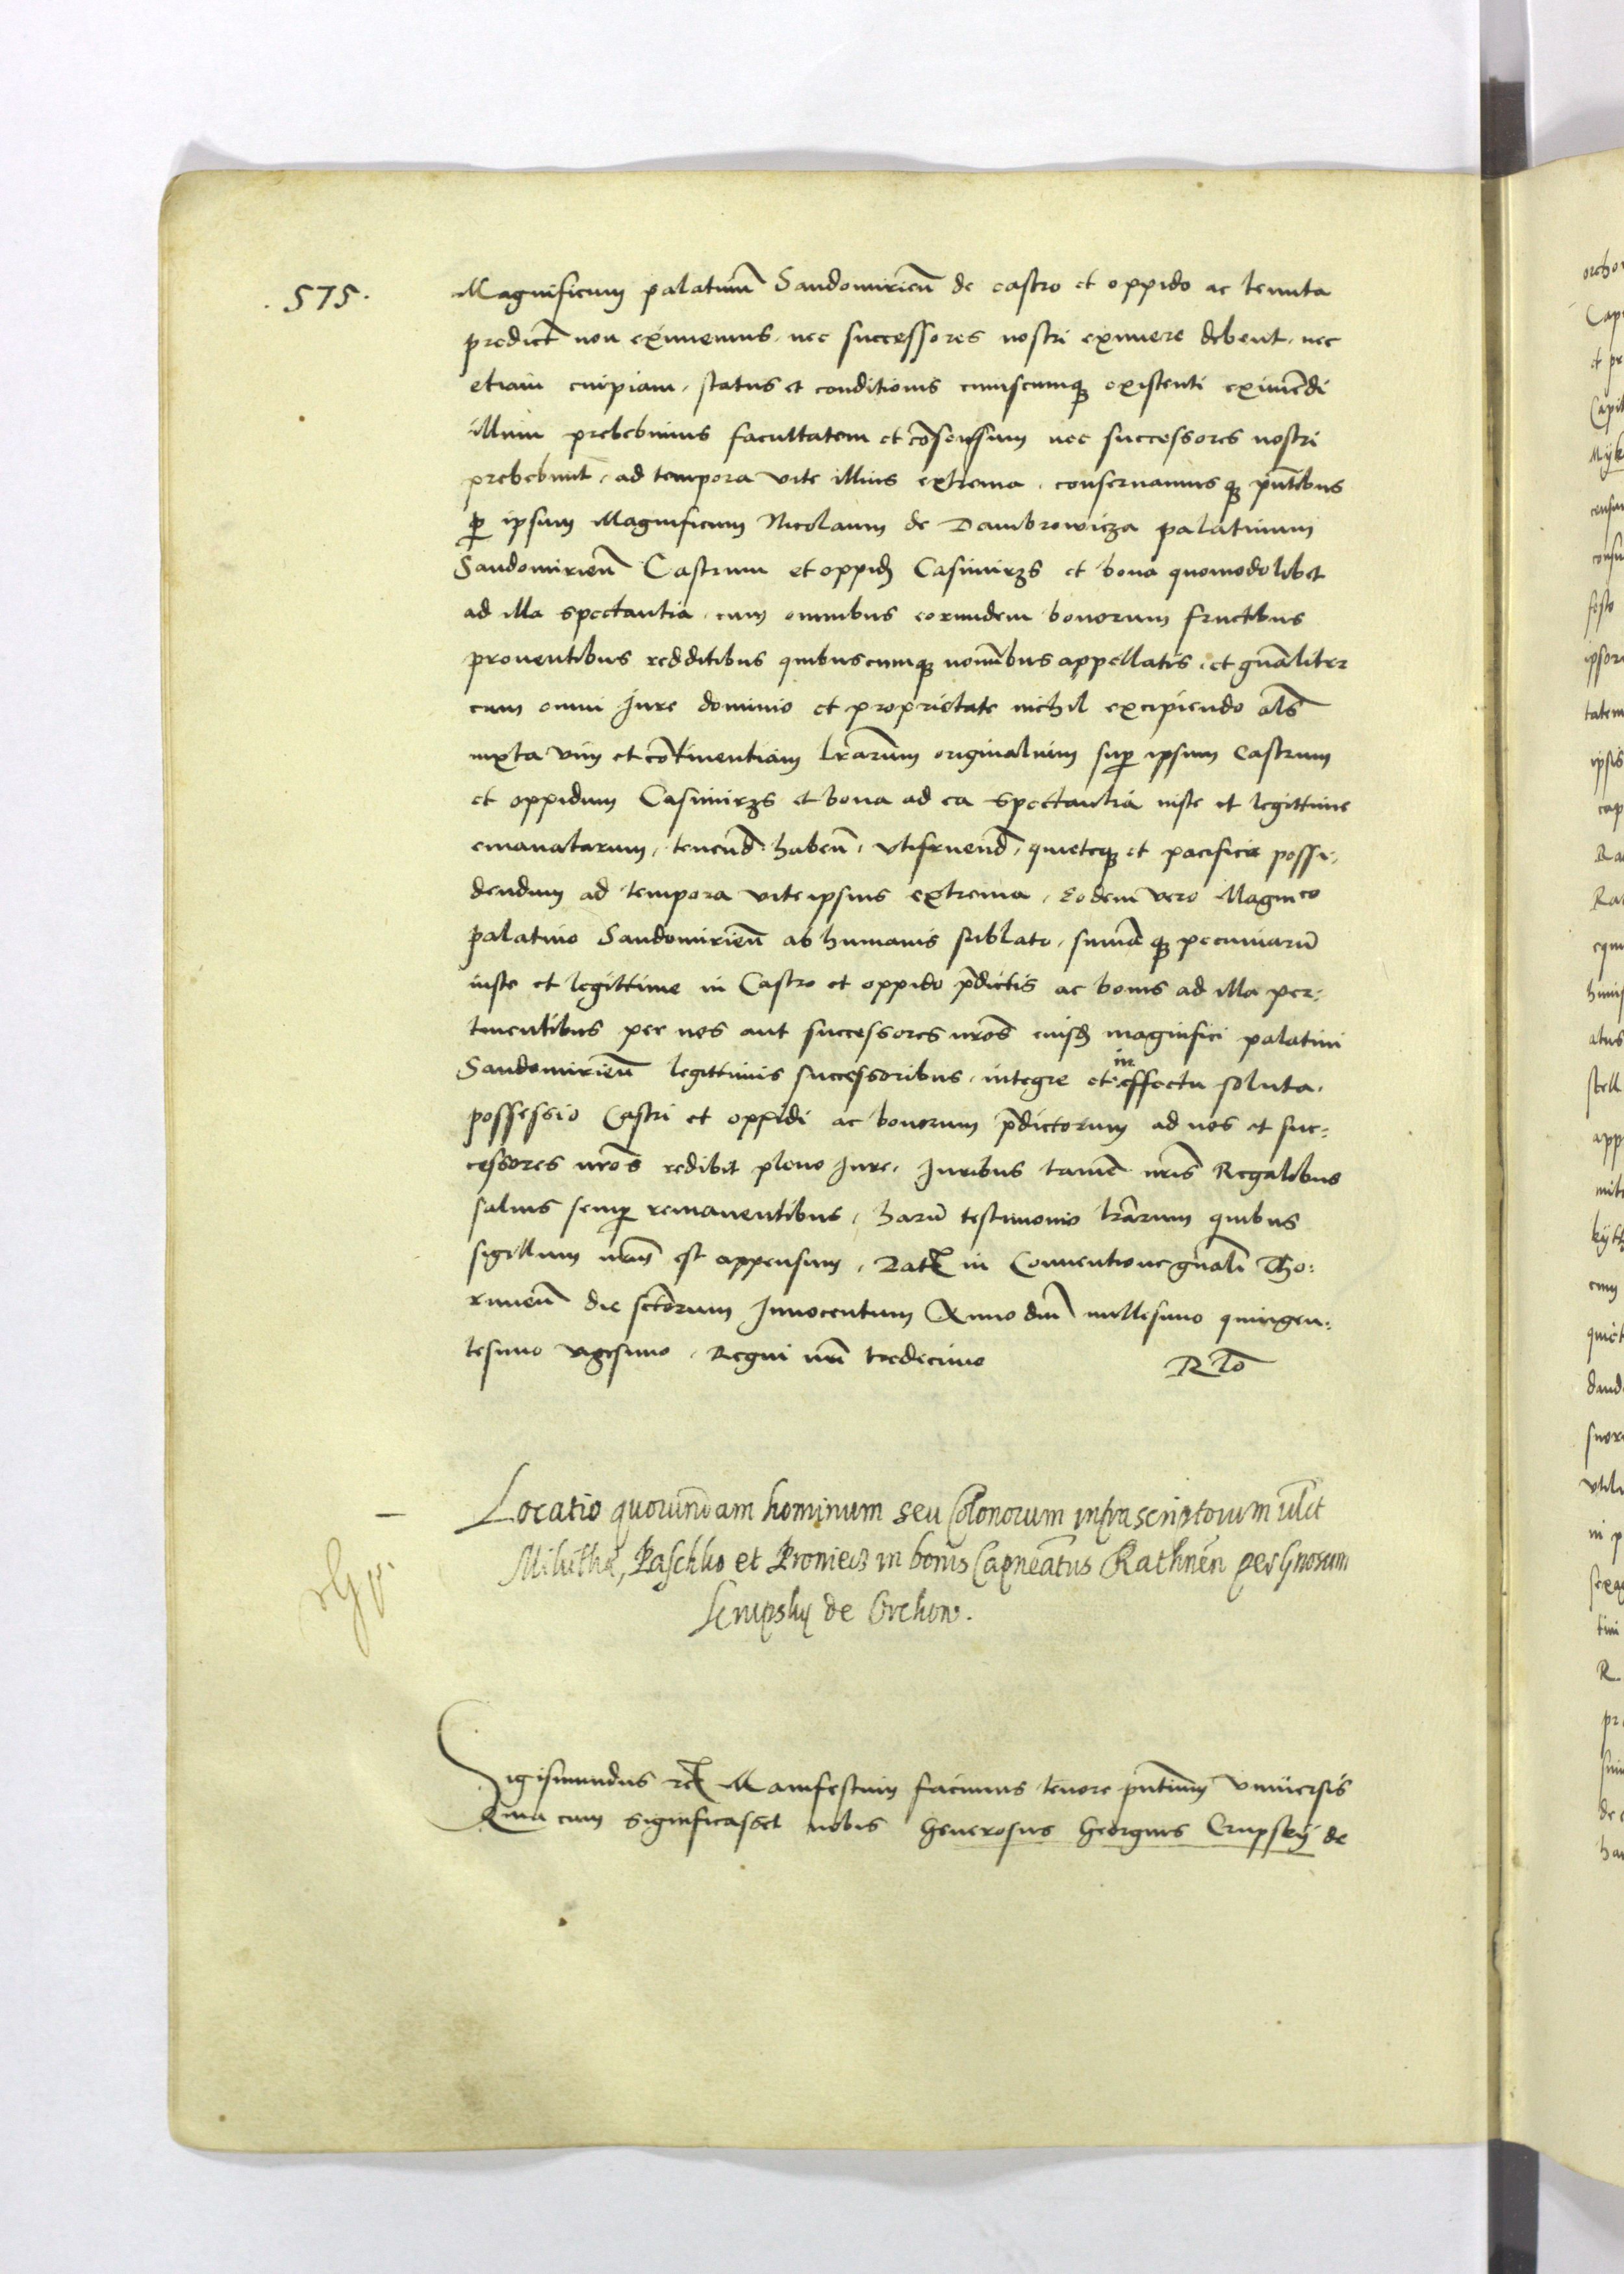 .575.
Magnificum palatinū Sandomirieñ de castro et oppido ac tenuta
predict̃ non eximemus, nec successores nostri eximere debent, nec
etiam cuipiam, status et conditionis cuiuscumqꝫ existenti eximēdi
illum prebebimus facultatem et cōsensum nec successores nostri
prebebunt, ad tempora vite illius extrema, conseruamusqꝫ pñtibus
ꝑ ipsum Magnificum Nicolaum de Dambrowicza palatinum
Sandomirieñ Castrum et oppidꝫ Casimirzs et bona quomodolibet
ad illa spectantia, cum omnibus eorundem bonorum fructibus
prouentibus redditibus quibuscumqꝫ nomībus appellatis, et gñaliter
cum omni Jure dominio et proprietate nichil excipiendo als̃
iuxta vim et cōtinentiam lr̃arum originalium suꝑ ipsum Castrum
et oppidum Casimirzs et bona ad ea spectantia iuste et legittime
emanatarum, tenend̃ habeñ, vtifruend̃, quieteqꝫ et pacifice possi-
dendum ad tempora vite ipsius extrema, Eodem vero Magnico
palatino Sandomirieñ ab humanis sublato, sum̄aqꝫ pecuniarū
iuste et legittime in Castro et oppido p̄dictis ac bonis ad illa per:
tinentibus per nos aut successores nr̃os eiusdꝫ magnifici palatini
Sandomirieñ legittimis successoribus, integre et in effectu soluta,
possessio Castri et oppidi ac bonorum p̄dictorum ad nos et suc:
cessores nr̃os redibit pleno Jure, Juribus tamē nr̃is Regalibus
saluis semꝑ remanentibus, harū testimonio lr̃arum quibus
sigillum nr̃m est appensum, Dat̃ in Conuentione gñali Tho:
runeñ die sctōrum Innocentum Anno dñi millesimo quingen:
tesimo vigesimo, Regni nr̃i tredecimo
R To
Locatio quorundam hominum seu Colonorum infrascriptorum vl̃t
Milutha, Paschko et Proniecz in bonis Capneātus Rathneñ per Gnosum
Crupsky de Orchow.
Sigismundus rex̃ Manifestum facimus tenore pñtium vniuersis
Quia cum significasset nobis Generosus Georgius Crupskÿ de